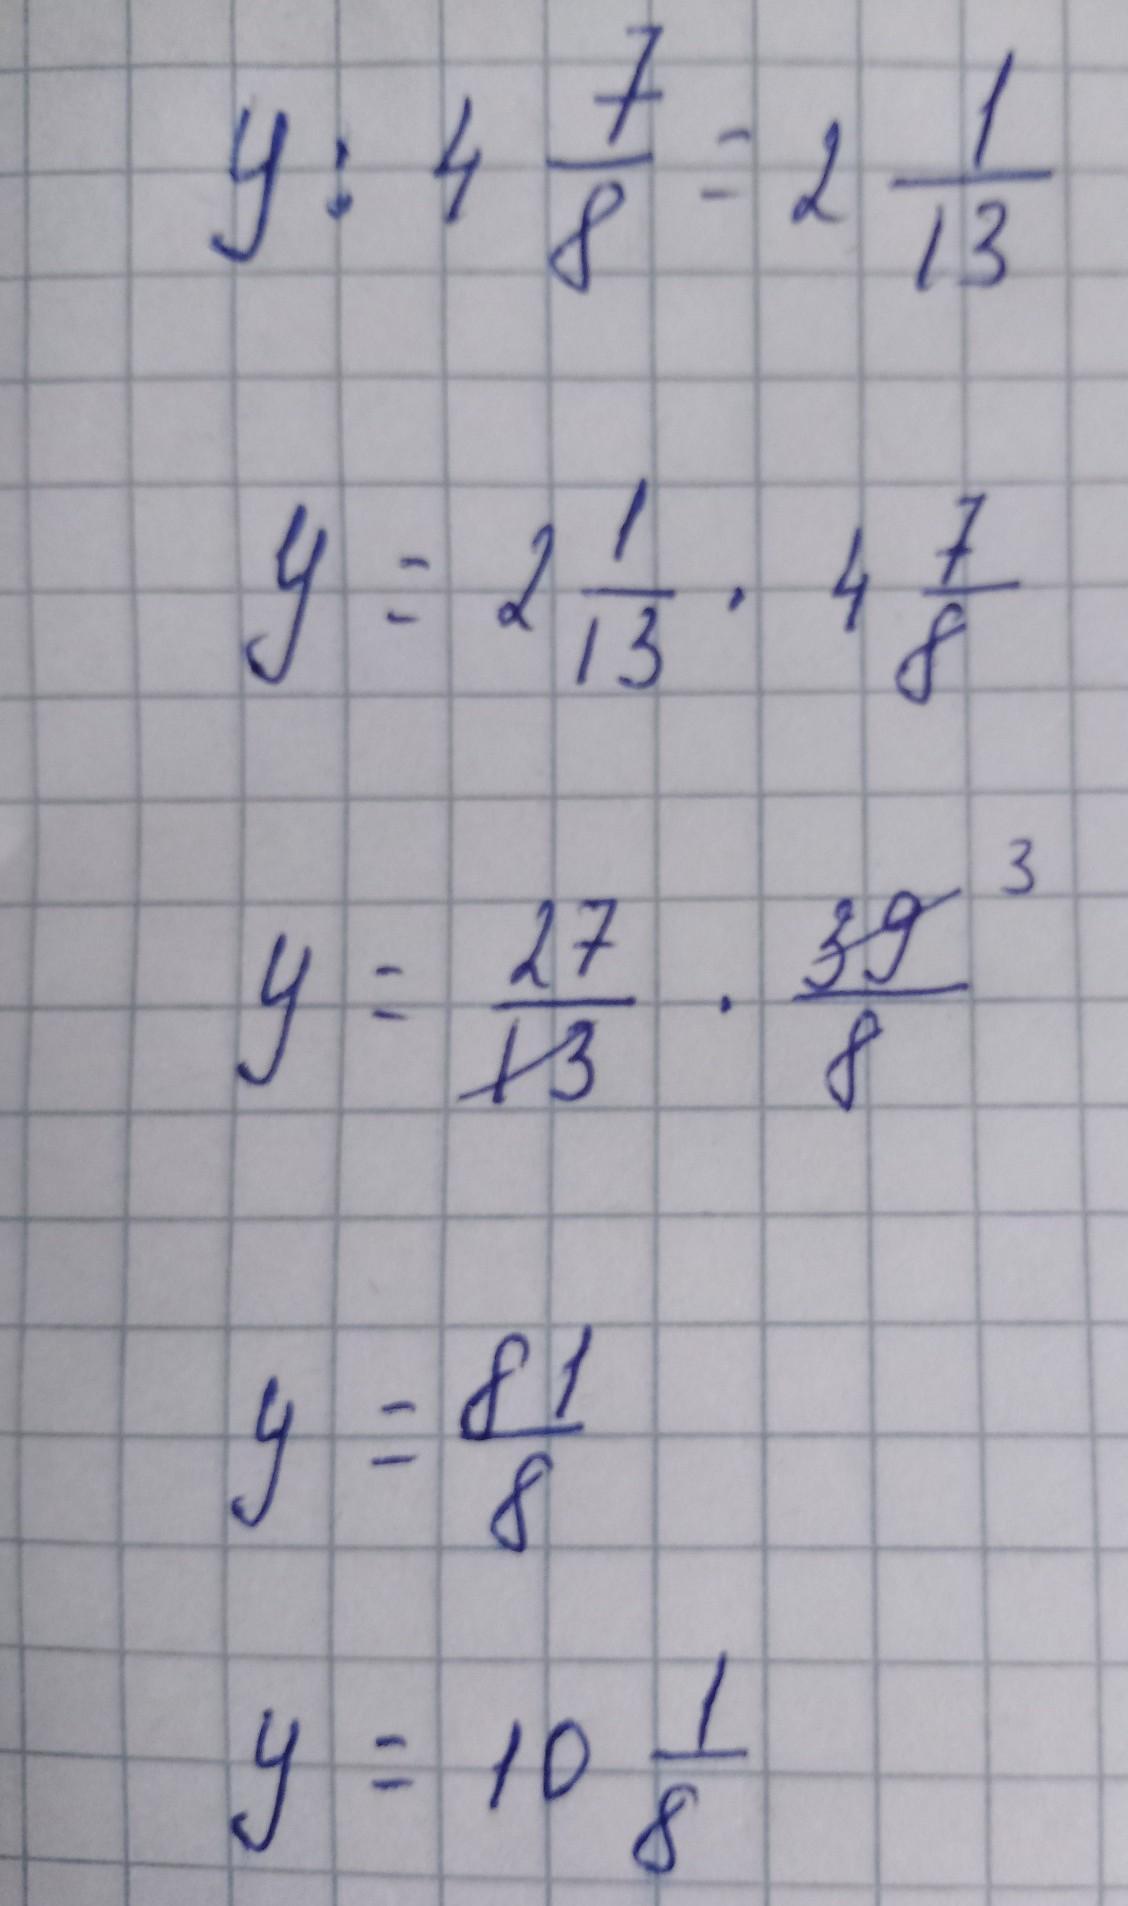 y : 4 7/8 = 2 1/13
y = 2 1/13 · 4 7/8
y = 27/13 · 39/8 3
y = 81/8
y = 10 1/8